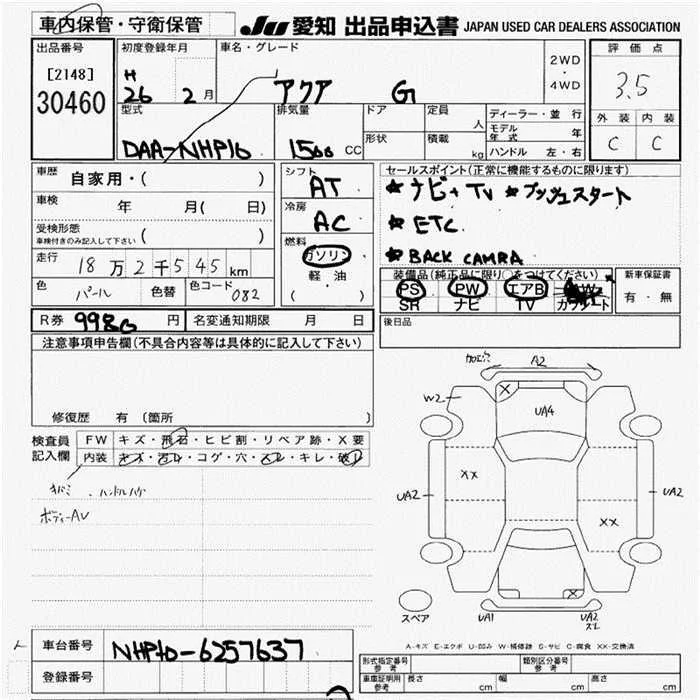 車内保管・守衛保管
JU 愛知 出品申込書 JAPAN USED CAR DEALERS ASSOCIATION
出品番号
[2148]
30460
初度登録年月
H
26 2月
車名・グレード
アクア G
2WD
・
4WD
評価点
3.5
外装 内装
C C
型式
DAA-NHP10
排気量
1500 CC
ドア
形状
定員
人
積載
kg
ディーラー・並行
モデル年式 年
ハンドル 左・右
車歴
自家用・( )
車検
年 月( 日)
受検形態
車検付きのみ記入して下さい ( )
走行
18万2千545km
色
パール
色替
色コード
082
シフト
AT
冷房
AC
燃料
ガソリン
軽・油
( )
セールスポイント(正常に機能するものに限ります)
★ナビ+TV ★プッシュスタート
★ETC
★BACK CAMRA
装備品(純正品に限り○をつけてください)
PS PW エアB AW
SR ナビ TV カワシート
新車保証書
有・無
R券 9980 円
名変通知期限 月 日
後日品
注意事項申告欄(不具合内容等は具体的に記入して下さい)
修復歴 有 〔箇所 〕
検査員
記入欄
FW キズ・飛石・ヒビ割・リペア跡・X要
内装 キズ・汚レ・コゲ・穴・スレ・キレ・破レ
ハンドルハゲ
ボディーAU
加工穴
A2
W2
UA4
XX
UA2
UA2
XX
スペア
UA1
UA2
スレ
A-キズ E-エクボ U-凹み W-補修跡 S-サビ C-腐食 XX-交換済
車台番号
NHP10-6257637
登録番号
形式指定番号
参考
類別区分番号
参考
車庫証明用
参考
長さ cm
幅 cm
高さ cm